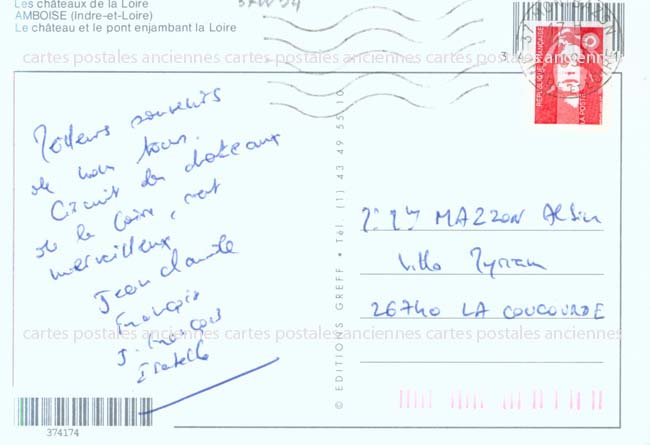 Les châteaux de la Loire
AMBOISE (Indre-et-Loire)
Le château et le pont enjambant la Loire
cartes postales anciennes cartes postales anciennes cartes postales anciennes
RÉPUBLIQUE FRANÇAISE
LA POSTE
Meilleurs souvenirs
de nous tous.
Circuit des châteaux
de la Loire, c'est
merveilleux
Jean Claude
François
J. François
Isabelle
© EDITIONS GREFF • Tél. (1) 43 49 55 10
MAZZON Albin
Villa Myriam
26740 LA COUCOURDE
cartes postales anciennes cartes postales anciennes cartes postales anciennes
374174